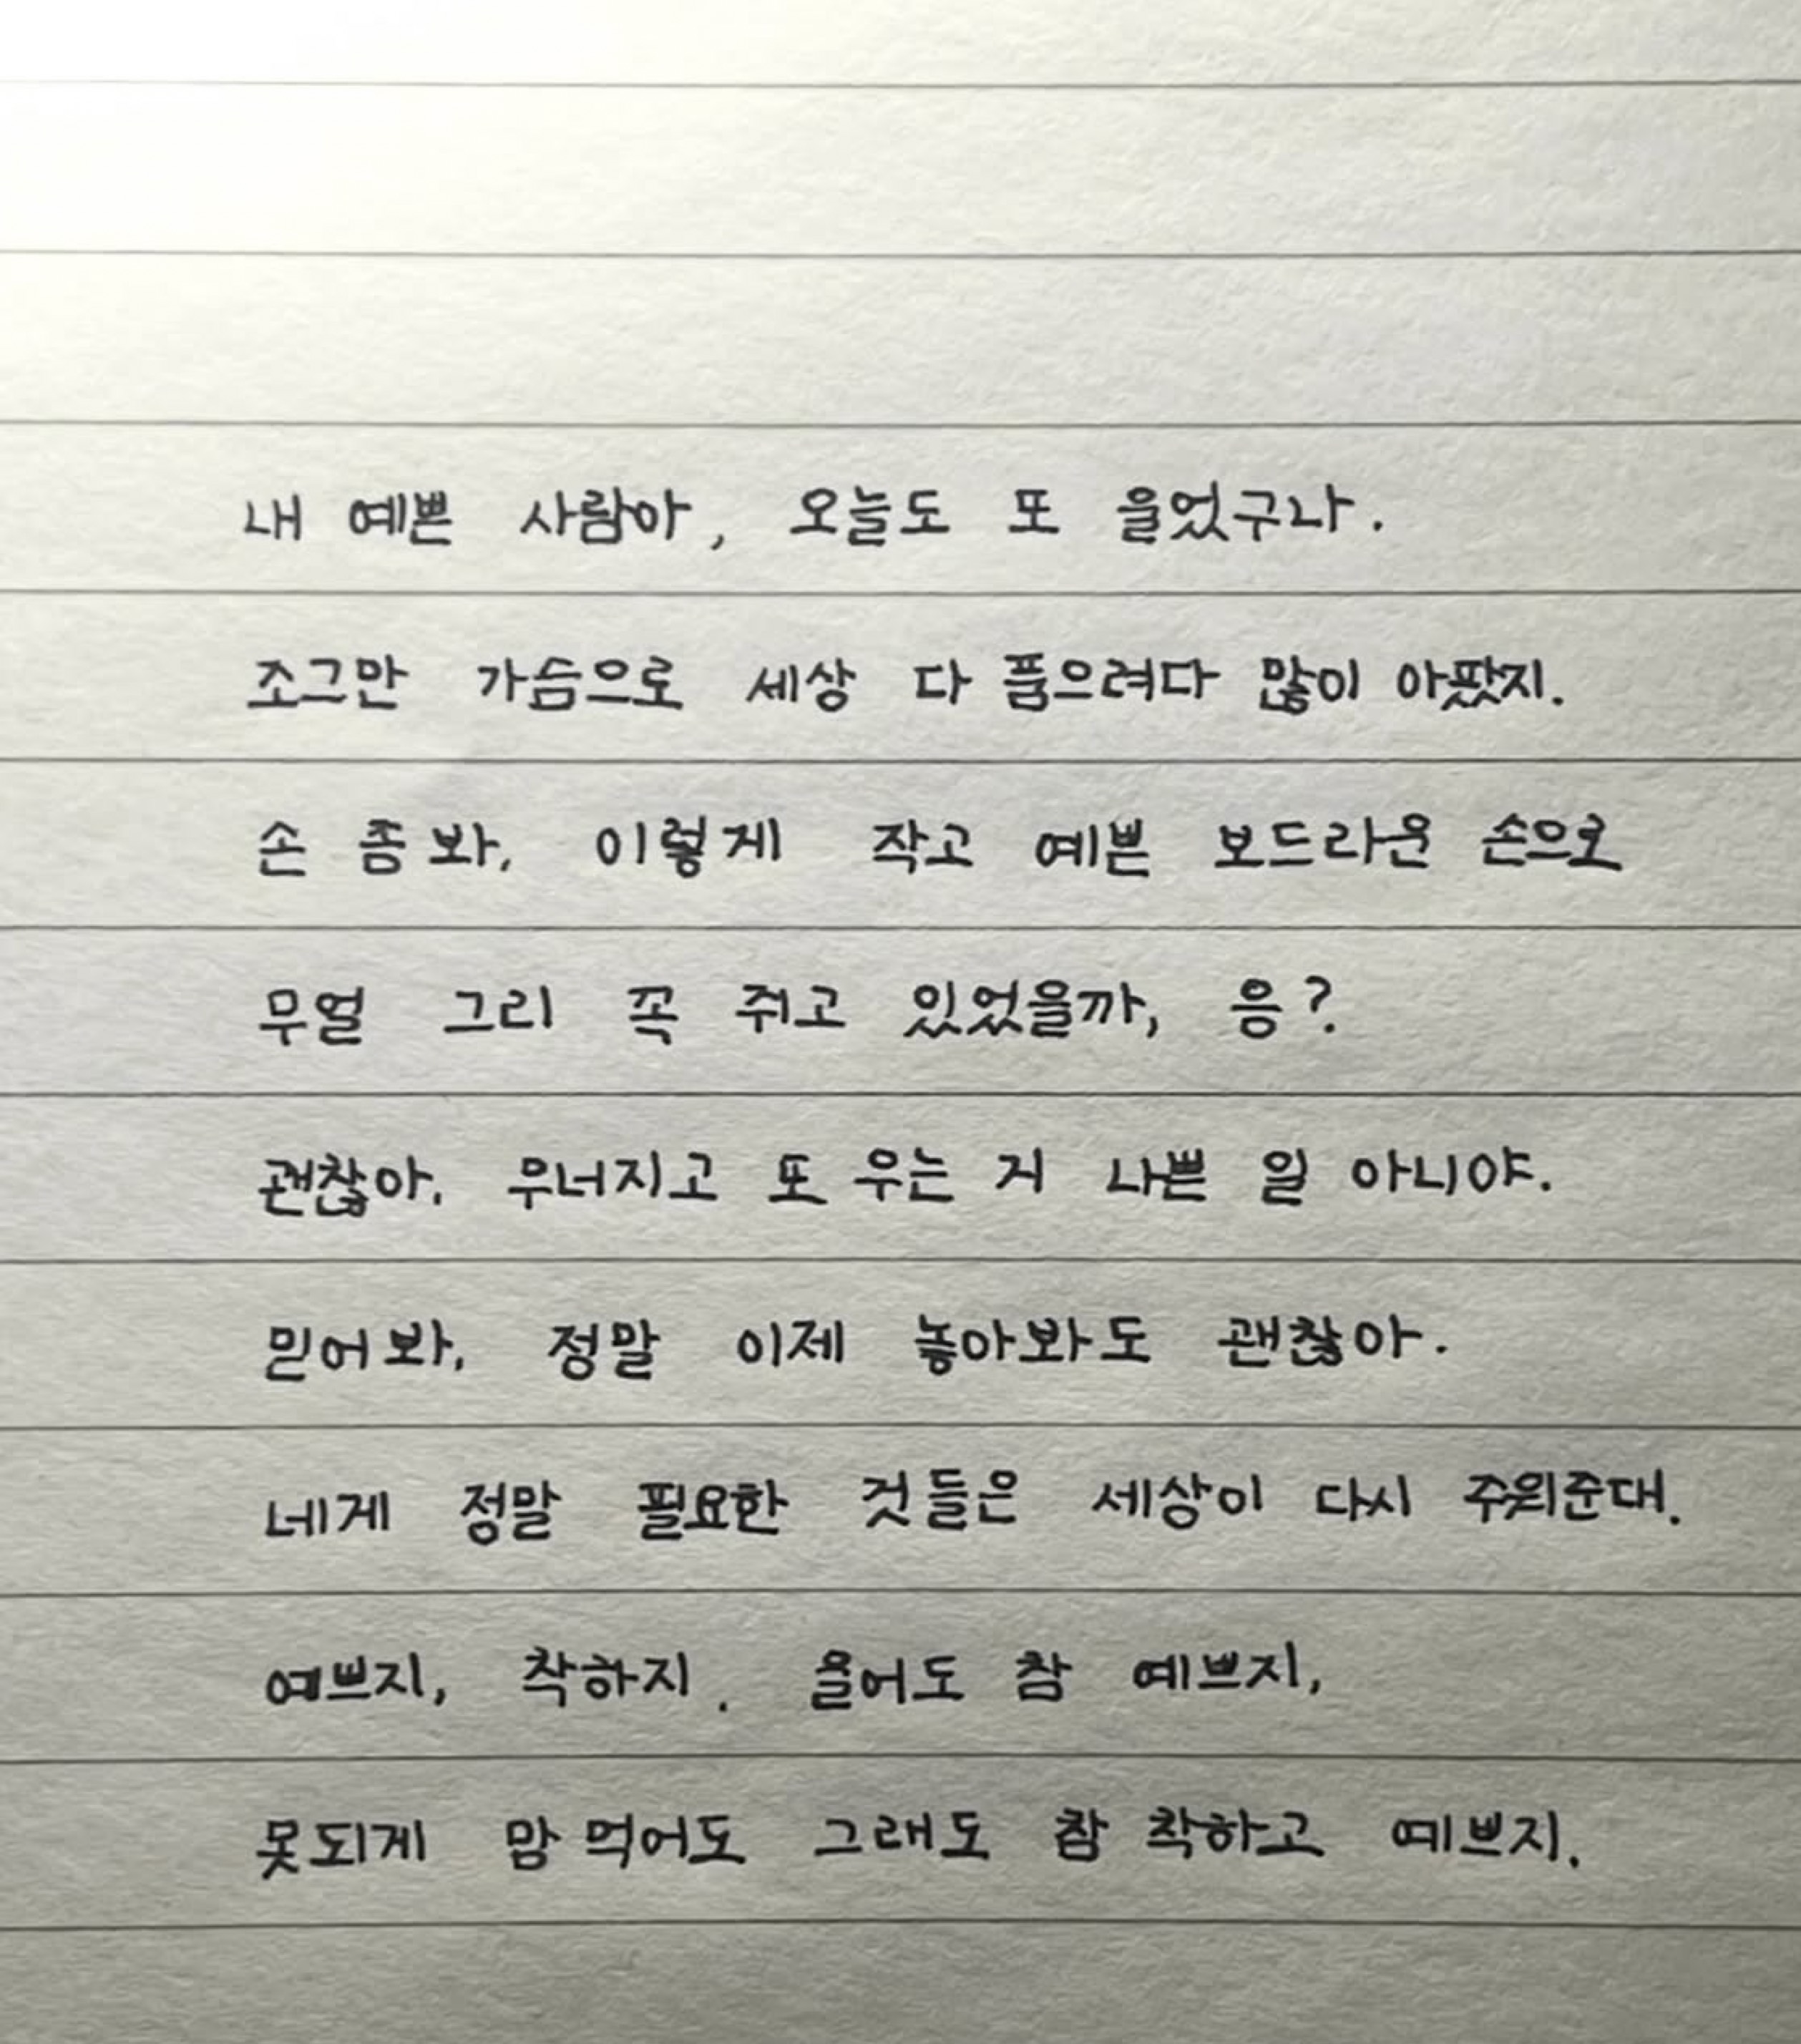 내 예쁜 사람아, 오늘도 또 울었구나.
조그만 가슴으로 세상 다 품으려다 많이 아팠지.
손 좀 봐, 이렇게 작고 예쁜 보드라운 손으로
무얼 그리 꼭 쥐고 있었을까, 응?
괜찮아, 무너지고 또 우는 거 나쁜 일 아니야.
믿어봐, 정말 이제 놓아봐도 괜찮아.
네게 정말 필요한 것들은 세상이 다시 쥐여준대.
예쁘지, 착하지. 울어도 참 예쁘지,
못되게 맘 먹어도 그래도 참 착하고 예쁘지.